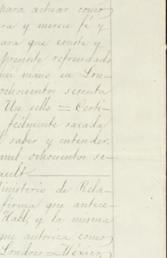 para actuar como
ra y merece fé y
ara que conste y
presente refrendado
mi mano en Lon
ochocientos sesenta
Un sello = Certi
fielmente sacada
saber y entender.
mil ochocientos se
ault.
inisterio de Rela
firma que antece
Hall y la misma
que autoriza como
Londres = México